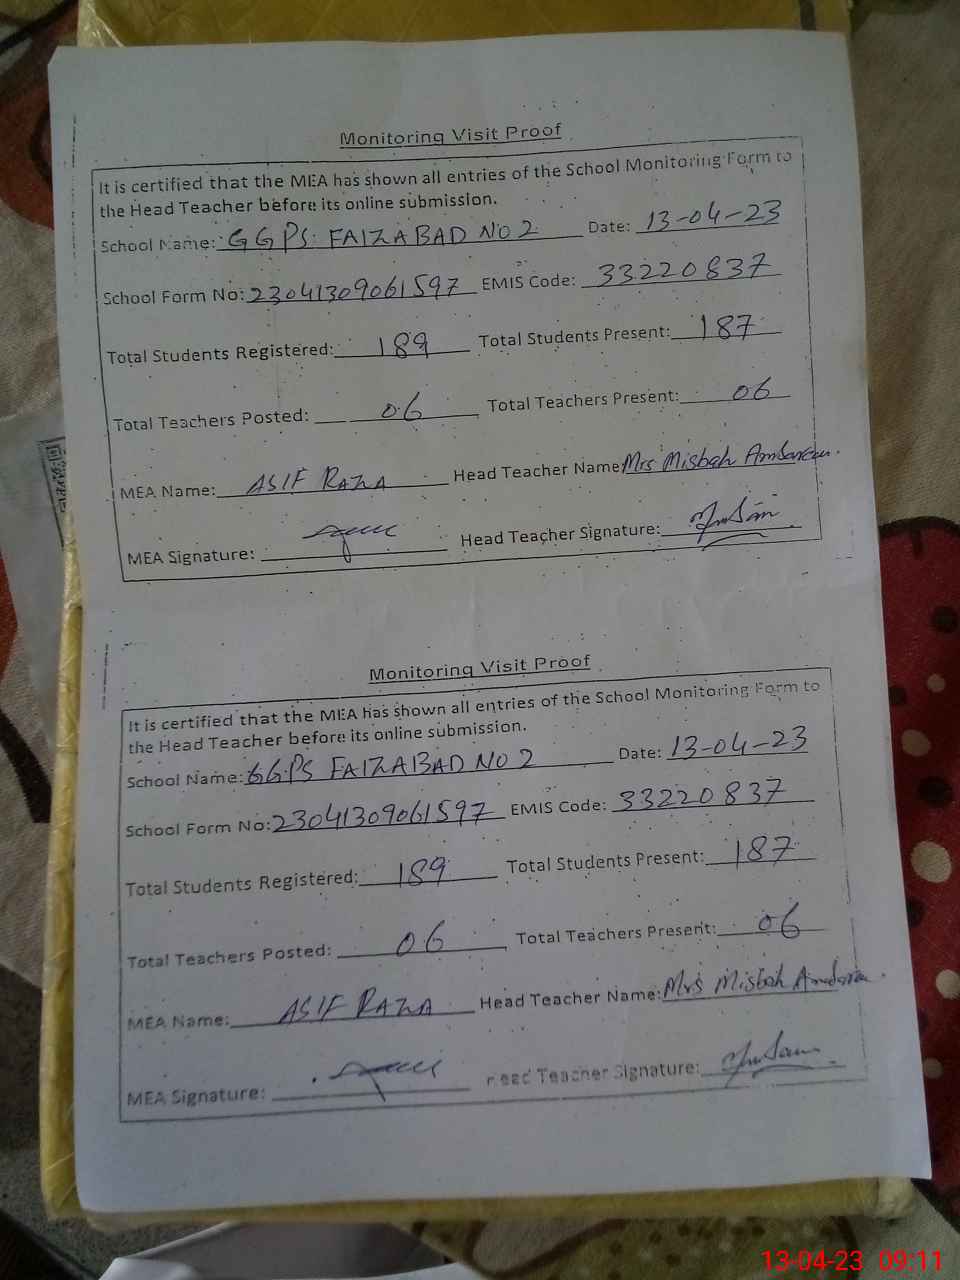 Monitoring Visit Proof
It is certified that the MEA has shown all entries of the School Monitoring Form to
the Head Teacher before its online submission.
School Name: GGPS FAIZABAD NO 2 Date: 13-04-23
School Form No: 23041309061597 EMIS Code: 33220837
Total Students Registered: 189 Total Students Present: 187
Total Teachers Posted: 06 Total Teachers Present: 06
MEA Name: ASIF RAZA Head Teacher Name: Mrs Misbah
MEA Signature: Head Teacher Signature:
Monitoring Visit Proof
It is certified that the MEA has shown all entries of the School Monitoring Form to
the Head Teacher before its online submission.
School Name: GGPS FAIZABAD NO 2 Date: 13-04-23
School Form No: 23041309061597 EMIS Code: 33220837
Total Students Registered: 189 Total Students Present: 187
Total Teachers Posted: 06 Total Teachers Present: 06
MEA Name: ASIF RAZA Head Teacher Name: Mrs Misbah
MEA Signature: Head Teacher Signature:
13-04-23 09:11